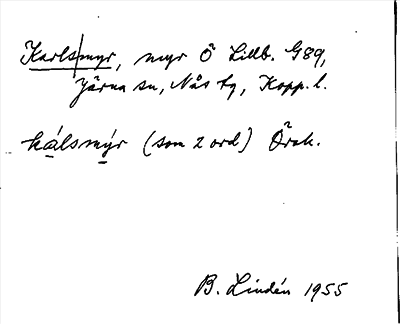 Karlsmyr, myr Ö Lillb. G89,
Järna sn, Nås tg, Kopp. l.
kálsmýr (som 2 ord) Örak.
B. Lindén 1955